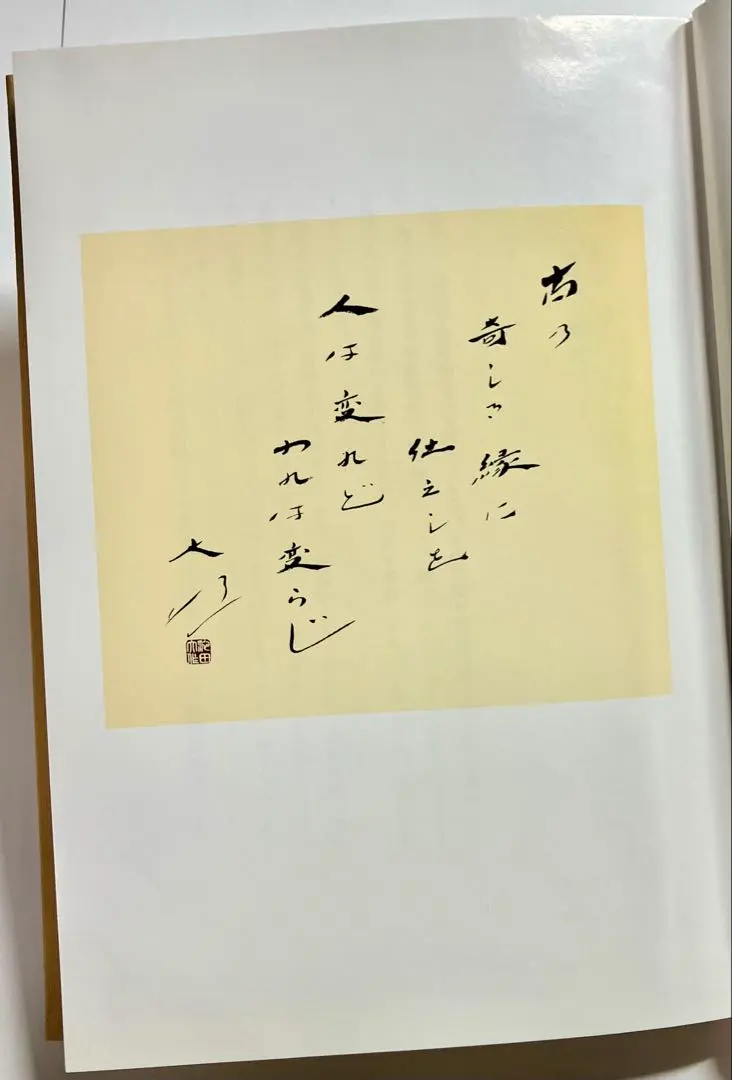 古乃
奇しき縁に
仕えしを
人は変れど
われは変らじ
大作
池田大作